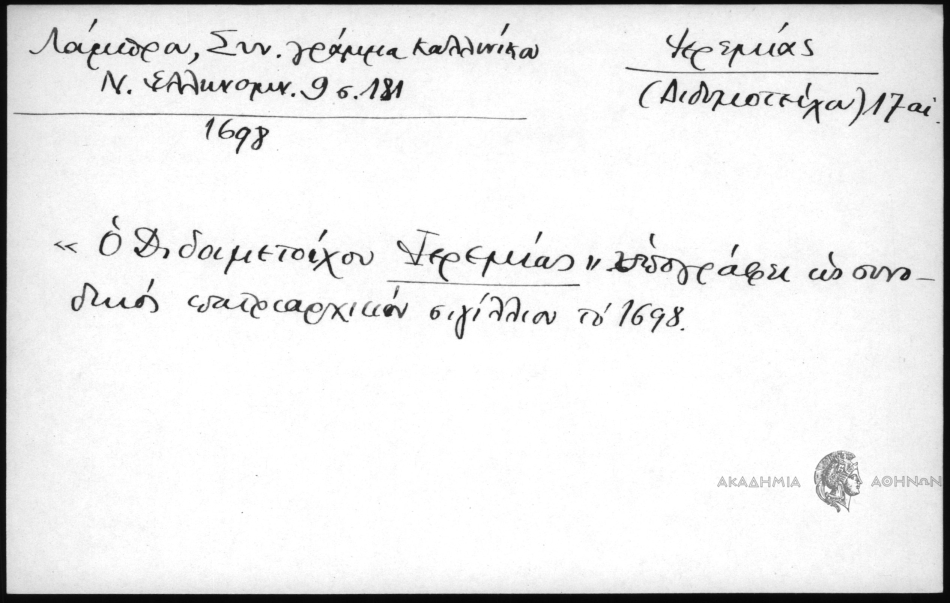 Λάμπρου, Συν. γράμμα Καλλινίκου
Ν. Ἑλληνομν. 9 σ. 181
1698
Ἱερεμίας
(Διδυμοτείχου) 17 αἰ.
« Ὁ Διδυμοτοίχου Ἱερεμίας » ὑπογράφει ὡς συνο-
δικός πατριαρχικόν σιγίλλιον τό 1698.
ΑΚΑΔΗΜΙΑ ΑΘΗΝΩΝ